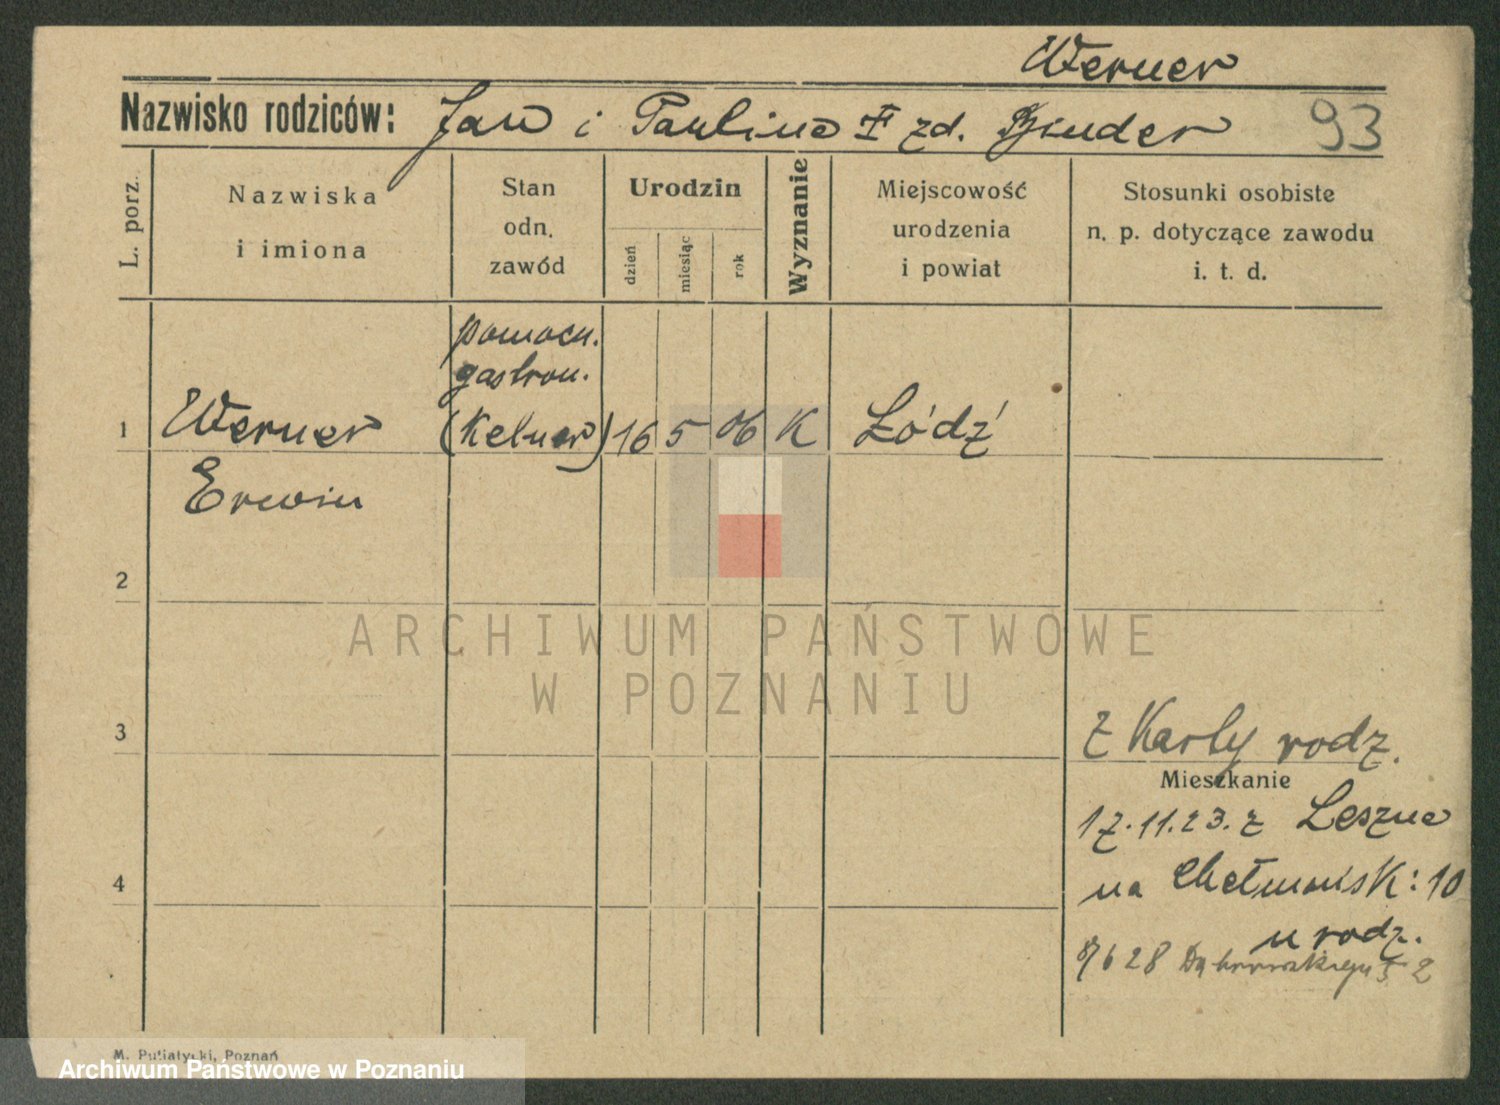 Werner
Nazwisko rodziców: Jan i Paulina zd. Binder 93
L. porz.
Nazwiska
i imiona
Stan
odn.
zawód
Urodzin
dzień
miesiąc
rok
Wyznanie
Miejscowość
urodzenia
i powiat
Stosunki osobiste
n. p. dotyczące zawodu
i. t. d.
pomocn.
gastron.
1 Werner (Kelner) 16 5 06 K Łódź
Erwin
2
ARCHIWUM PAŃSTWOWE
W POZNANIU
3
z Karty rodz.
Mieszkanie
17.11.23. z Leszna
na Chełmońsk: 10
4
u rodz.
8/6 28 Dąbrowskiego 2
M. Putiatycki, Poznań
Archiwum Państwowe w Poznaniu